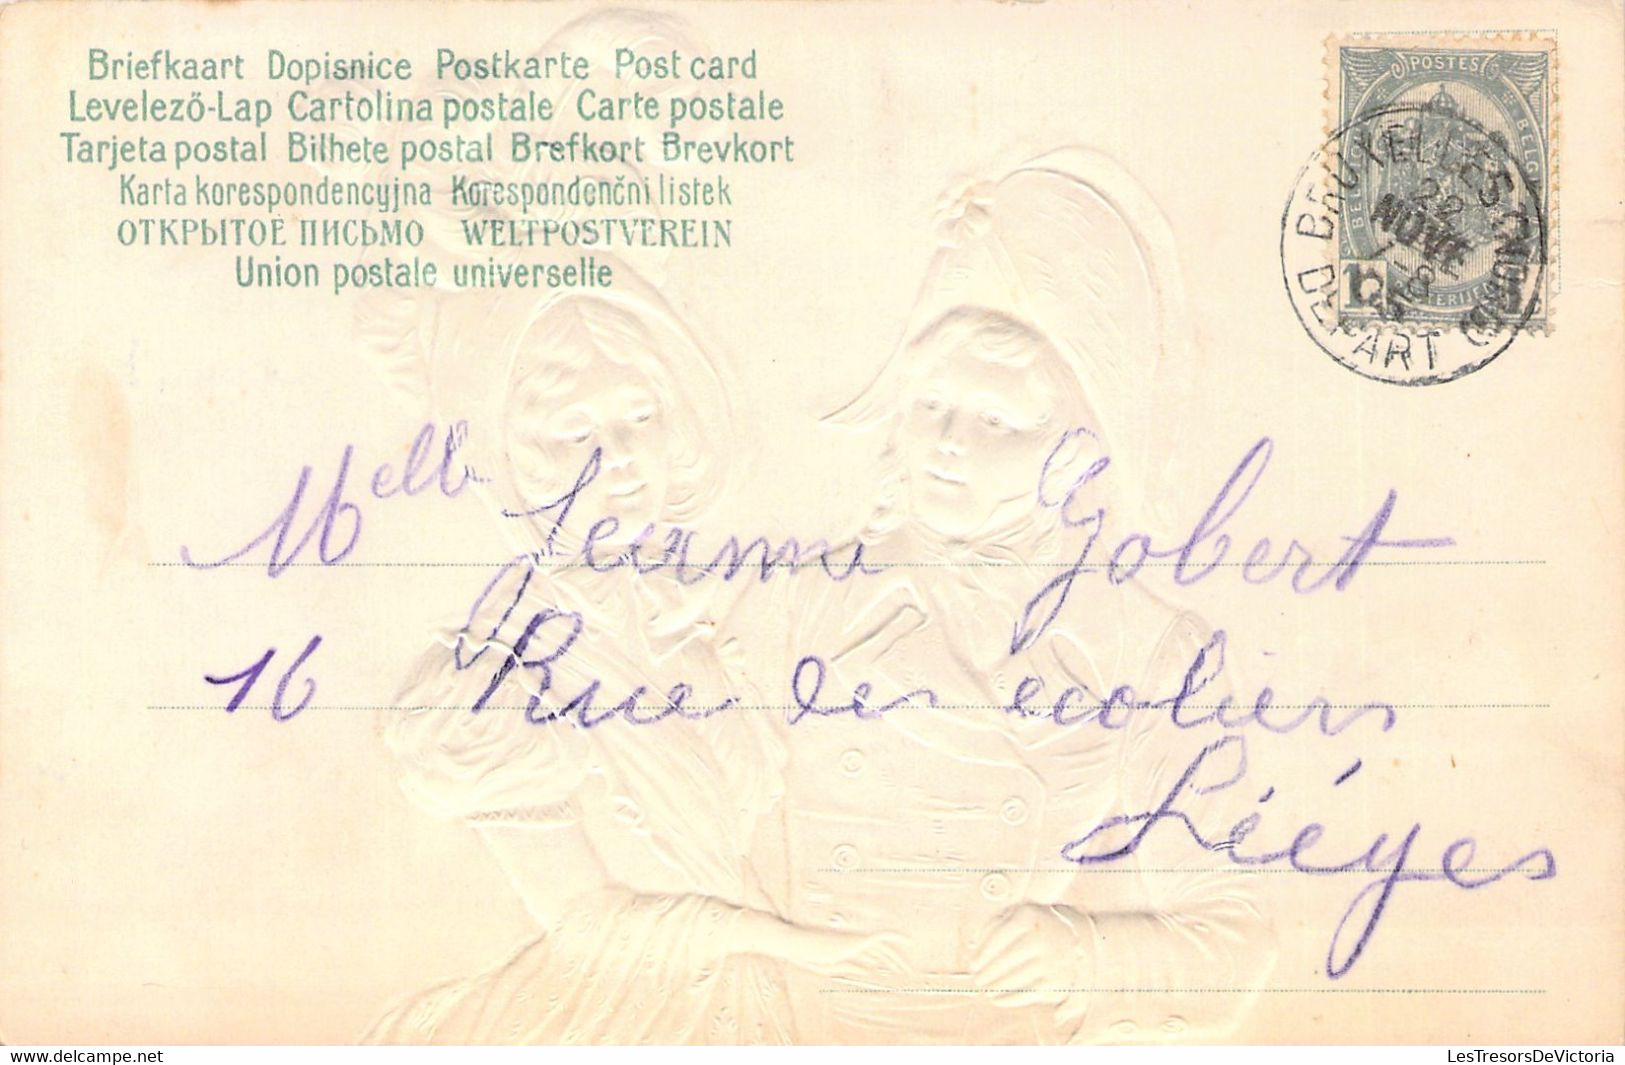 Briefkaart Dopisnice Postkarte Post card
Levelező-Lap Cartolina postale Carte postale
Tarjeta postal Bilhete postal Brefkort Brevkort
Karta korespondencyjna Korespondenčni listek
ОТКРЫТОЕ ПИСЬМО WELTPOSTVEREIN
Union postale universelle
POSTES
BRUXELLES
NOV
DEPART
Melle Gobert
16 Rue des ecoliers
Liéges
LesTresorsDeVictoria